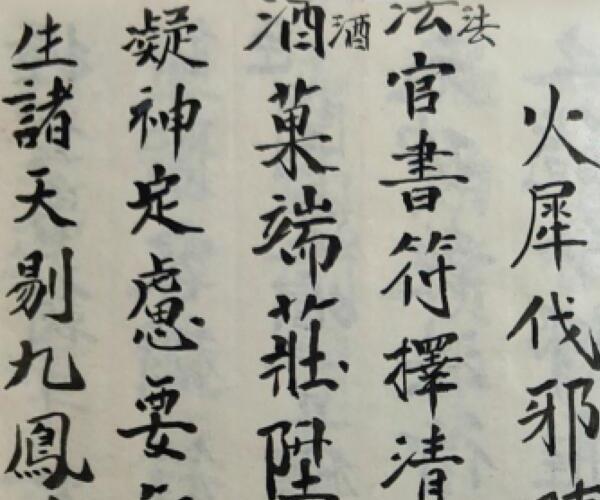 火犀伐邪
法法官書符擇清
酒酒菓端莊陞
凝神定慮要
生諸天剔九鳳